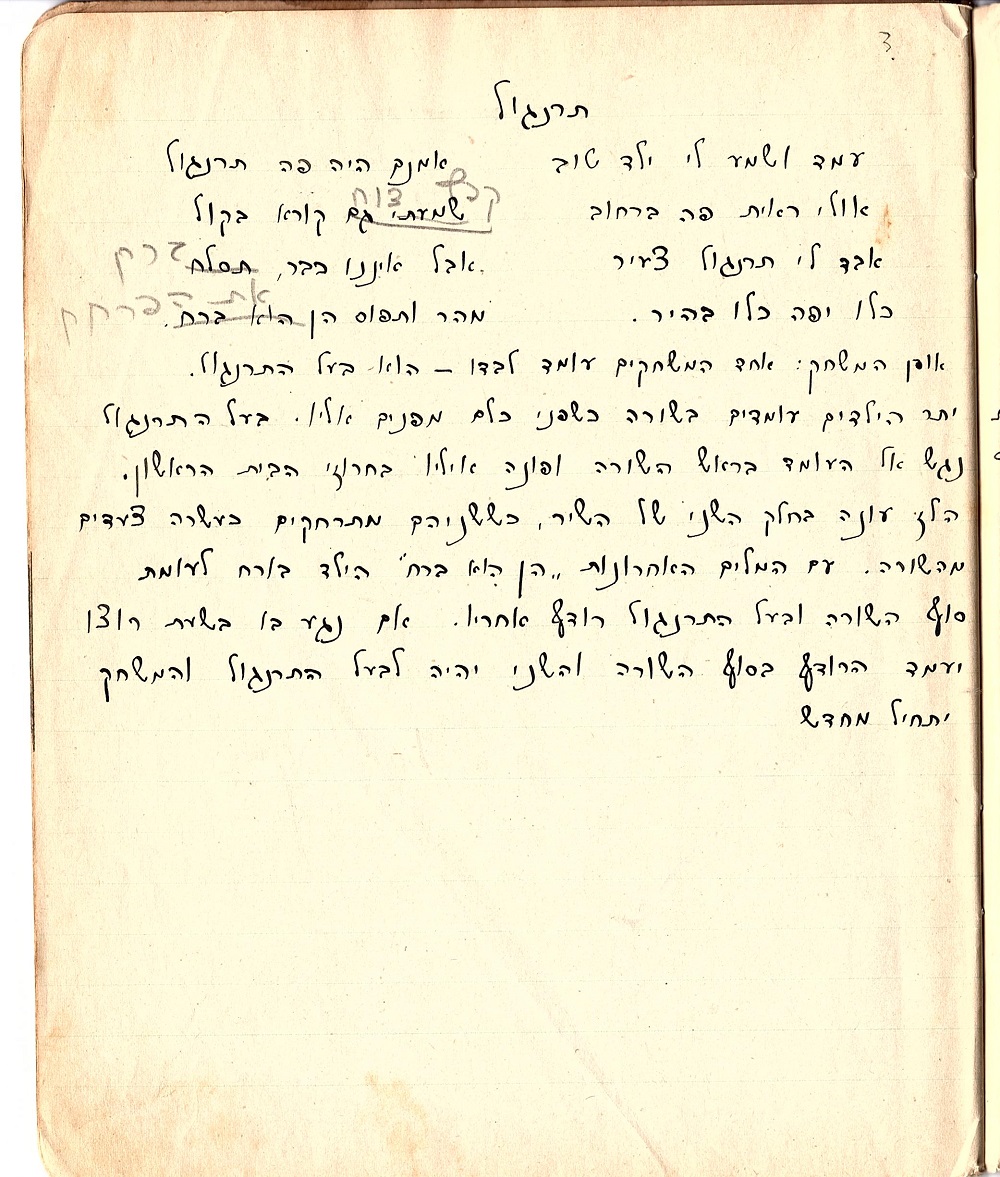 3
תרנגול
עמד ושמע לי ילד טוב
אולי ראית פה ברחוב
אבד לי תרנגול צעיר
כלו יפה כלו בהיר.
אמנם היה פה תרנגול
שמעתי גם קורא בקול
אבל איננו כבר, תסלח
מהר ותפוס הן הוא ברח.
צווח
ברח
את הפרחח
אופן המשחק: אחד המשחקים עומד לבדו – הוא בעל התרנגול.
יתר הילדים עומדים בשורה כשפני כלם מפנים אליו. בעל התרנגול
נגש אל העומד בראש השורה ופונה איליו בחרוזי הבית הראשון.
הלז עונה בחלק השני של השיר, כששניהם מתרחקים כעשרה צעדים
מהשורה. עם המלים האחרונות „הן הוא ברח" הילד בורח לעומת
סוף השורה ובעל התרנגול רודף אחריו. אם נגע בו בשעת רוצו
יעמד הרודף בסוף השורה והשני יהיה לבעל התרנגול והמשחק
יתחיל מחדש